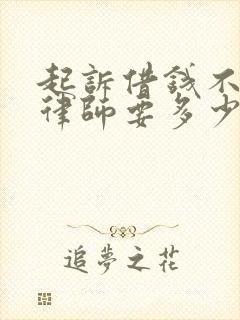 起訴借錢不
律師要多少
追夢之花